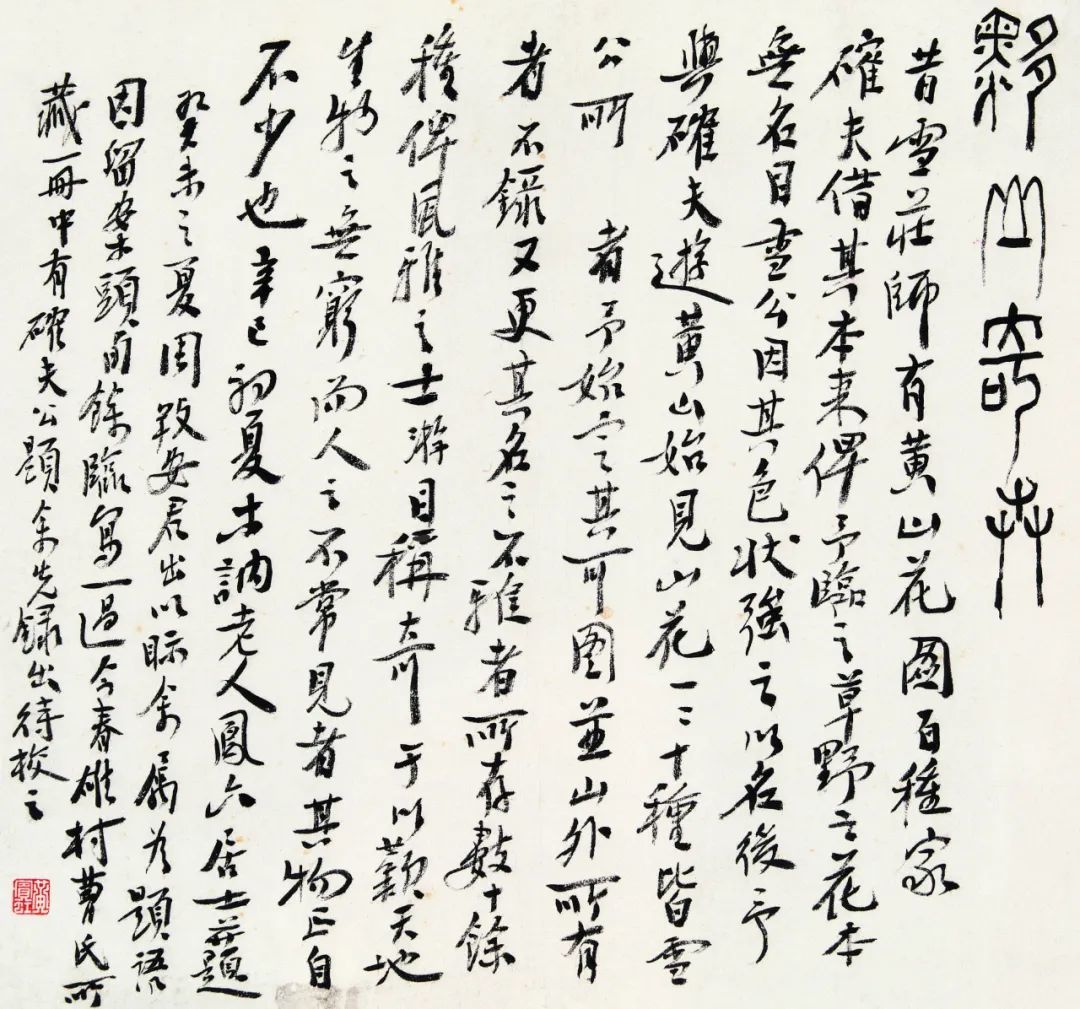 黟山奇卉
昔雪莊師有黄山花圖百種家
確夫借其本来俾予臨之草野之花本
無名目雪公因其色状強之以名後予
與確夫遊黄山始見山花一二十種皆雪
公所 者予始之其可图並山外所有
者不錄又更其名之不雅者所存數十餘
種俾風雅之士游目稱奇于以歎天地
生物之無窮而人之不常見者其物正自
不少也辛巳初夏木訥老人鳳六居士并題
癸未之夏因敦安君出以眎余屬为題語
因留案頭兩餘臨寫一過今春雄村曹氏所
藏一冊中有確夫公題余先録出待校之